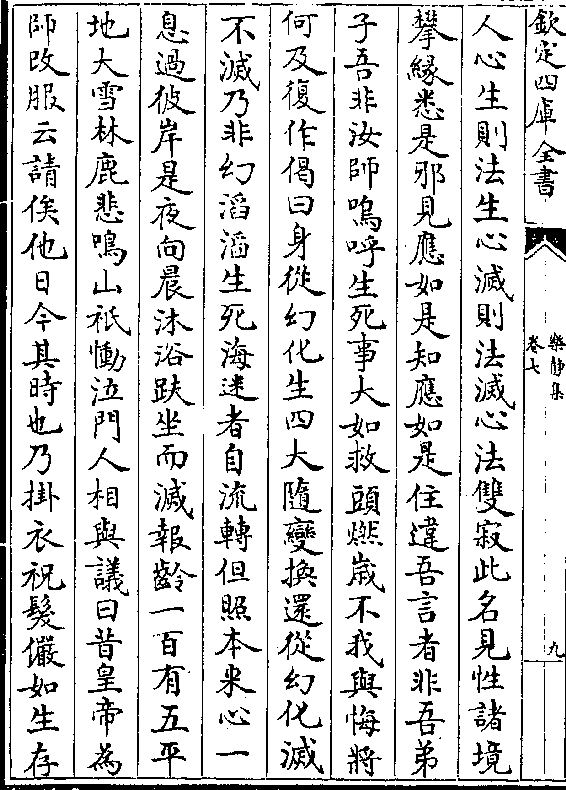 欽定四庫全書
樂靜集
卷七
九
人心生則法生心滅則法滅心法雙寂此名見性諸境
攀緣悉是邪見應如是知應如是住違吾言者非吾弟
子吾非汝師嗚呼生死事大如救頭燃歲不我與悔將
何及復作偈曰身從幻化生四大隨變換還從幻化滅
不滅乃非幻滔滔生死海迷者自流轉但照本来心一
息過彼岸是夜向晨沐浴趺坐而滅報齡一百有五平
地大雪林鹿悲鳴山祇慟泣門人相與議曰昔皇帝為
師改服云請俟他日今其時也乃掛衣祝髮儼如生存